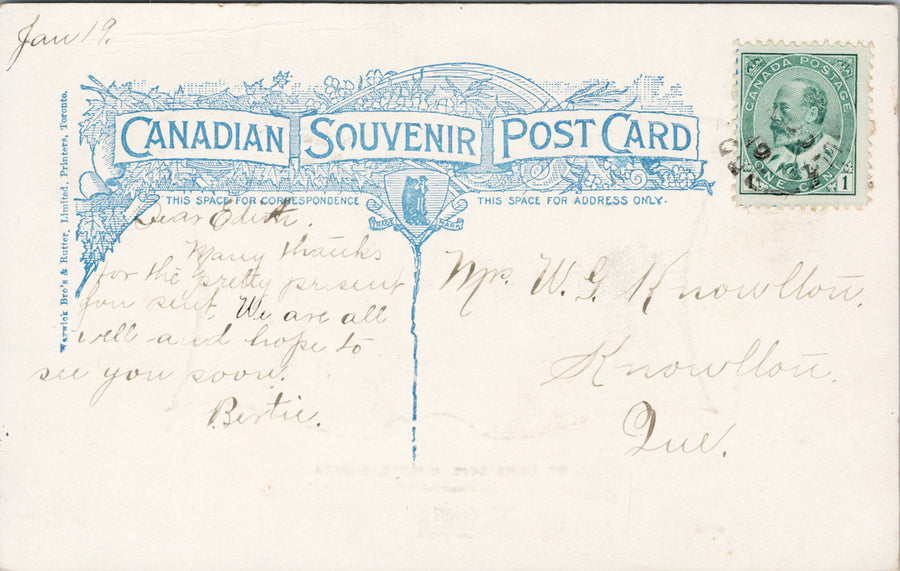 Jan 19.
CANADIAN SOUVENIR POST CARD
THIS SPACE FOR CORRESPONDENCE
THIS SPACE FOR ADDRESS ONLY.
TRADE MARK
Warwick Bro's & Rutter, Limited, Printers, Toronto.
CANADA POSTAGE
ONE CENT
1
Dear Edith.
Many thanks
for the pretty present
you sent. We are all
well and hope to
see you soon.
Bertie.
Mrs. W. G. Knowlton.
Knowlton.
Que.